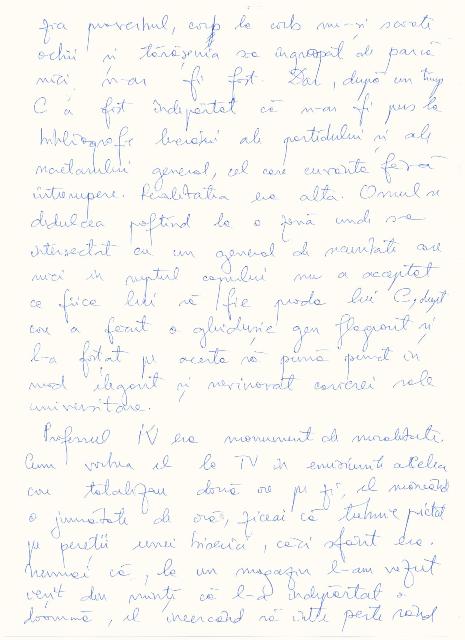 zica proverbul, corb la corb nu-și scoate
ochii și tărășenia s-a îngropat de parcă
nici n-ar fi fost. Dar, după un timp
C a fost îndepărtat că n-ar fi pus la
bibliografie lucrări ale partidului și ale
secretarului general, cel care cuvânta fără
întrerupere. Realitatea era alta. Omul se
dedulcea poftind la o zonă unde s-a
intersectat cu un general de securitate care
nici în ruptul capului nu a acceptat
ca fiica lui să fie prada lui C, drept
care a făcut o ghidușie gen flagrant și
l-a forțat pe acesta să pună punct în
mod elegant și nevinovat carierei sale
universitare.
Profesorul IV era monument de moralitate.
Cum vorbea el la TV în emisiunile acelea
care totalizau două ore pe zi, el mâncând
o jumătate de oră, ziceai că tocmai e pictat
pe pereții unei biserici, căci sfânt era.
Numai că, la un magazin l-am văzut
ieșit din minți că l-a îndepărtat o
doamnă, el încercând să intre peste rând